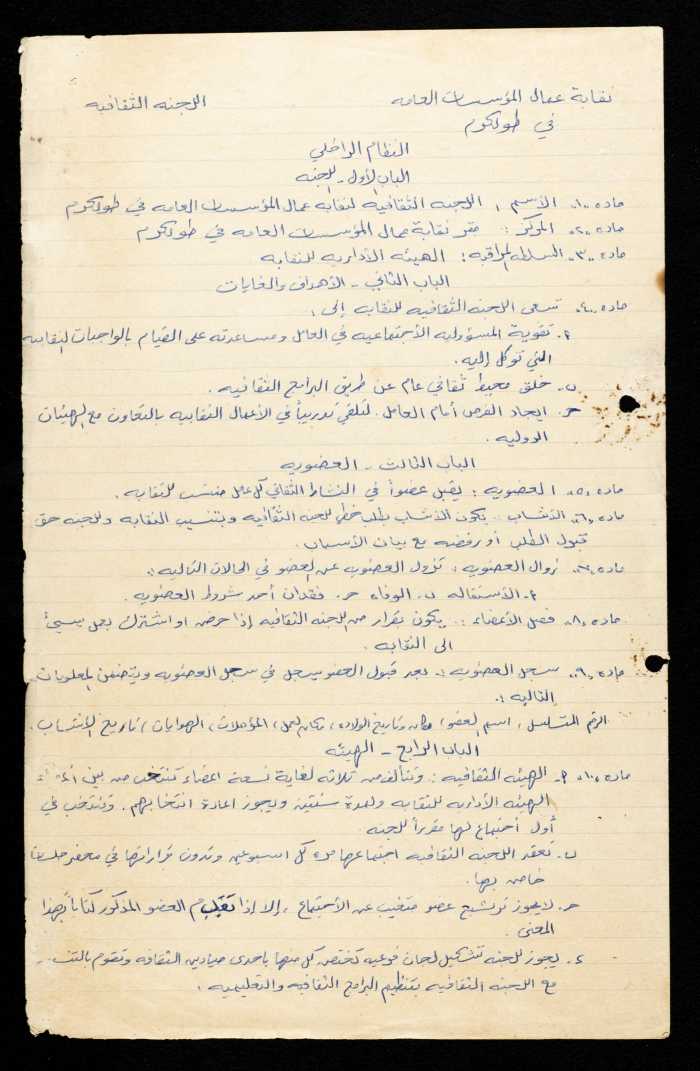 نقابة عمال المؤسسات العامه
اللجنه الثقافيه
في طولكرم
النظام الداخلي
الباب الأول - اللجنه
ماده "١" الأسم : اللجنه الثقافيه لنقابة عمال المؤسسات العامه في طولكرم
ماده "٢" المركز : مقر نقابة عمال المؤسسات العامه في طولكرم
ماده "٣" السلطه المراقبه : الهيئه الأداريه للنقابه
الباب الثاني - الأهداف والغايات
ماده "٤" تسعى اللجنه الثقافيه للنقابه إلى :
أ. تقوية المسؤوليه الأجتماعيه في العامل ومساعدته على القيام بالواجبات النقابيه
التي توكل إليه.
ب. خلق محيط ثقافي عام عن طريق البرامج الثقافيه .
ج. ايجاد الفرص أمام العامل . لتلقي تدريباً في الأعمال النقابيه بالتعاون مع الهيئات
الدوليه .
الباب الثالث - العضويه
ماده "٥" العضويه : يقبل عضواً في النشاط الثقافي كل عامل منتسب للنقابه .
ماده "٦" الأنتساب : يكون الأنتساب بطلب خطي للجنه الثقافيه وبتنسيب النقابه وللجنه حق
قبول الطلب أو رفضه مع بيان الأسباب .
ماده "٧" زوال العضويه : تزول العضويه عن العضو في الحالات التاليه :
أ. الأستقاله ب. الوفاه ج. فقدان أحد شروط العضويه .
ماده "٨" فصل الأعضاء : يكون بقرار من اللجنه الثقافيه إذا حرض او اشترك بعمل يسيئ
الى النقابه .
ماده "٩" سجل العضويه : بعد قبول العضو يسجل في سجل العضويه ويتضمن المعلومات
التاليه :
الرقم التسلسل ، اسم العضو ، مكان وتاريخ الولاده ، مكان العمل ، المؤهلات ، الهوايات ، تاريخ الإنتساب .
الباب الرابع - الهيئه
ماده "١٠" أ. الهيئه الثقافيه : وتتألف من ثلاثه لغاية تسعة اعضاء تنتخب من بين أعضاء
الهيئه الأداريه للنقابه ولمدة سنتين ويجوز اعادة انتخابهم . وتنتخب في
أول اجتماع لها مقرراً للجنه
ب. تعقد اللجنه الثقافيه اجتماعها مره كل اسبوعين وتدون قراراتها في محضر جلسات
خاص بها .
ج. لا يجوز ترشيح عضو متغيب عن الأجتماع ، إلا إذا تقدم العضو المذكور كتاباً بهذا
المعنى .
د. يجوز للجنه تشكيل لجان فرعيه تختص كل منها باحدى ميادين الثقافه وتقوم
مع اللجنه الثقافيه بتنظيم البرامج الثقافيه والتعليميه .